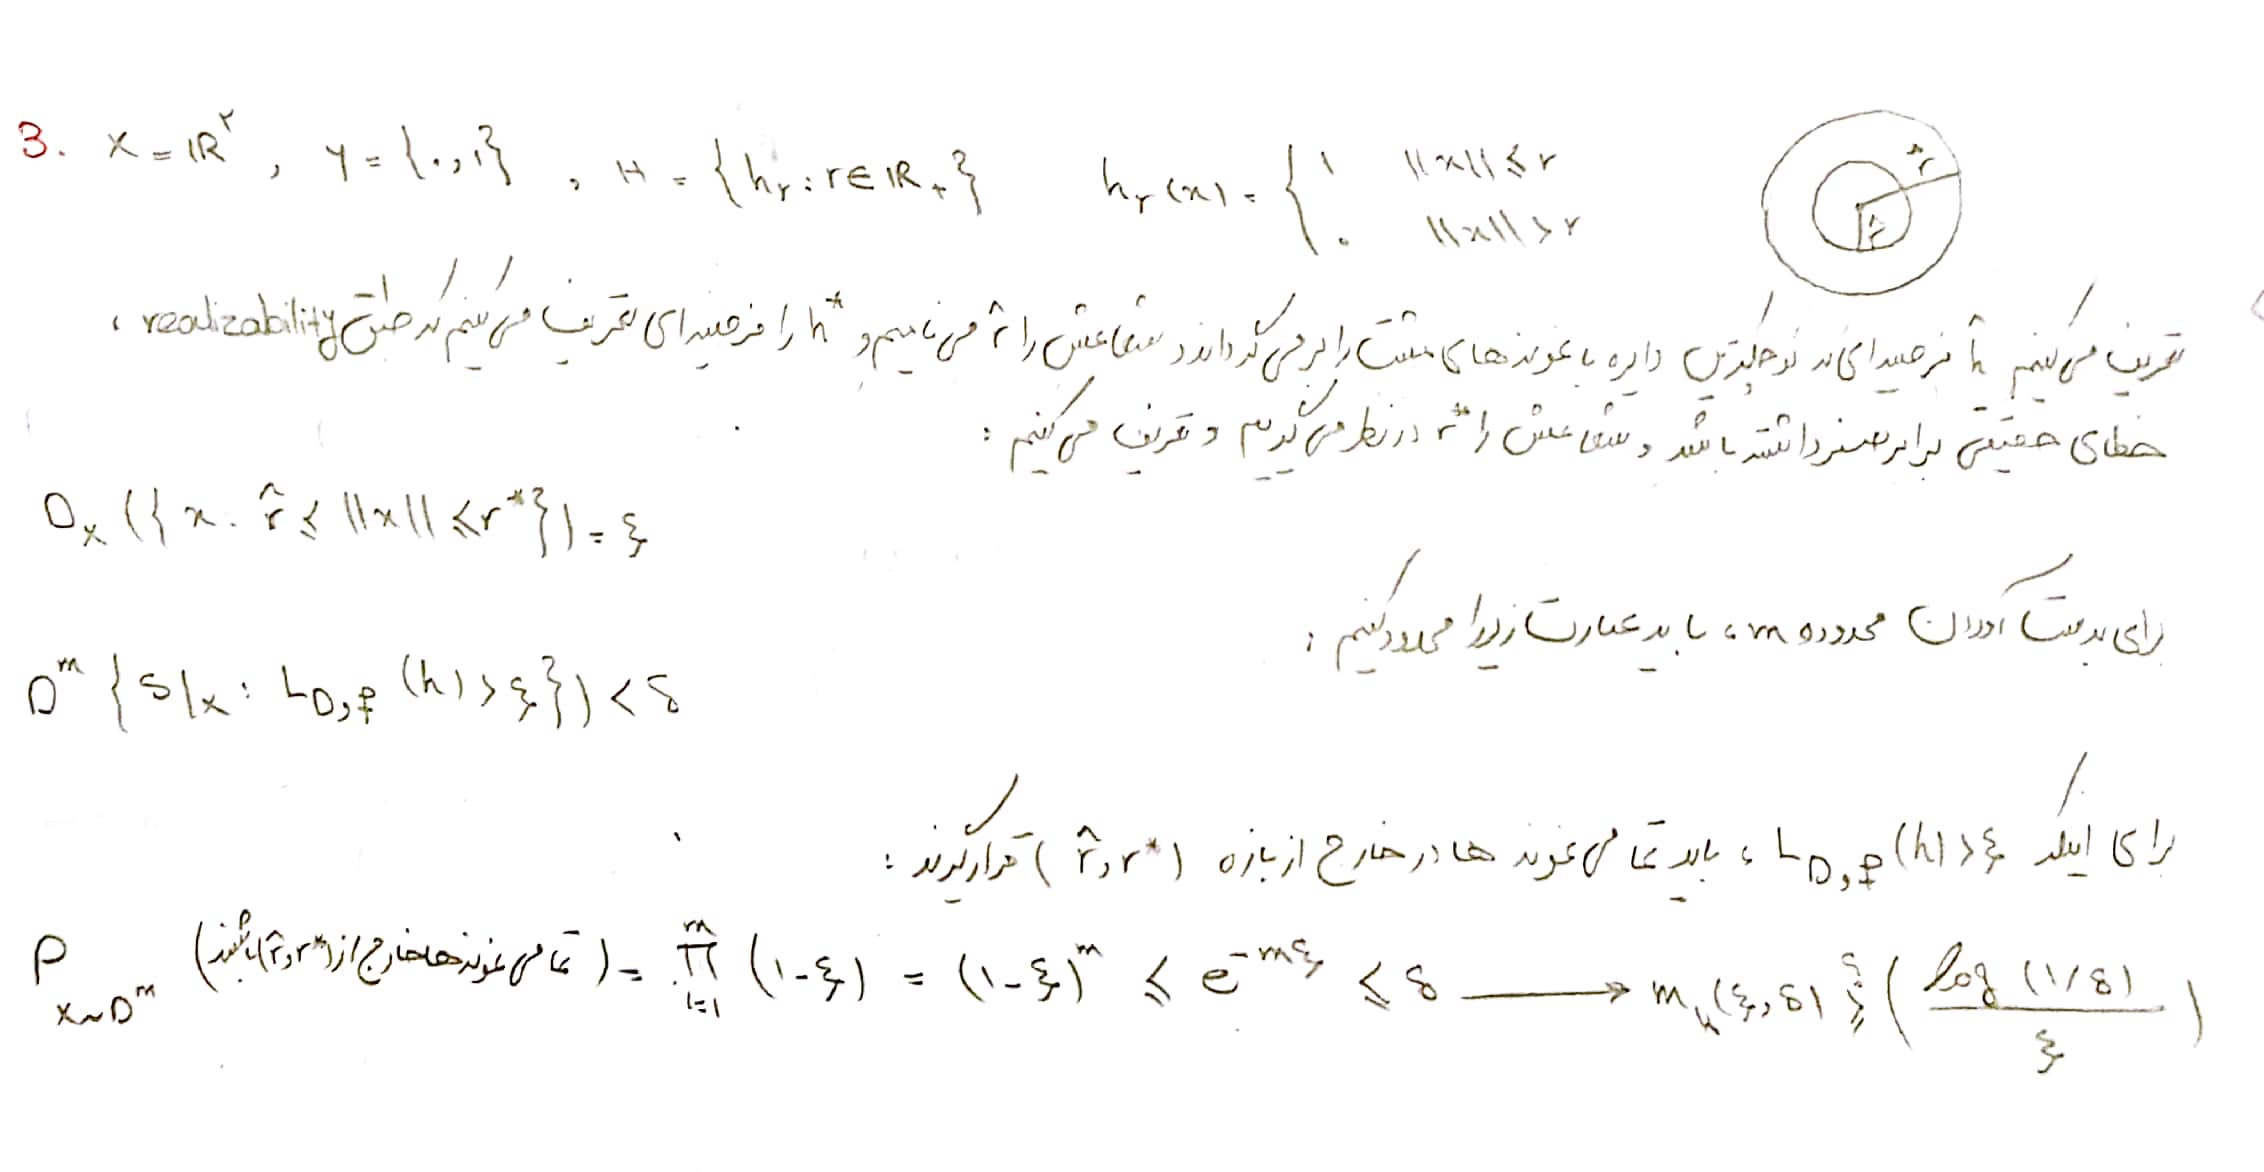 3. X = ℝ², Y = {۰,۱}, H = {h_r : r ∈ ℝ₊} h_r(x) = { ۱ ‖x‖ ≤ r ۰ ‖x‖ > r r* r̂
تعریف می‌کنیم ĥ فرضیه‌ای که کوچکترین دایره با نمونه‌های مثبت را برمی‌گرداند و شعاعش را r̂ می‌نامیم و h* را فرضیه‌ای تعریف می‌کنیم که طبق realizability،
خطای حقیقی برابر صفر داشته باشد و شعاعش را r* در نظر می‌گیریم و تعریف می‌کنیم:
D_x({x: r̂ ≤ ‖x‖ ≤ r*}) = ξ
برای بدست آوردن محدوده m، باید عبارت زیر را محدود کنیم:
D^m {S|x : L_{D,f}(h) > ξ}) < δ
برای اینکه L_{D,f}(h) > ξ، باید تمامی نمونه ها در خارج از بازه (r̂, r*) قرار گیرند:
P_{x∼D^m} (تمامی نمونه‌ها خارج از (r̂, r*) باشند) = ∏_{i=1}^{m} (۱-ξ) = (۱-ξ)^m ≤ e^{-mξ} ≤ δ ⟶ m_H(ξ,δ) ≥ (log(۱/δ) / ξ)